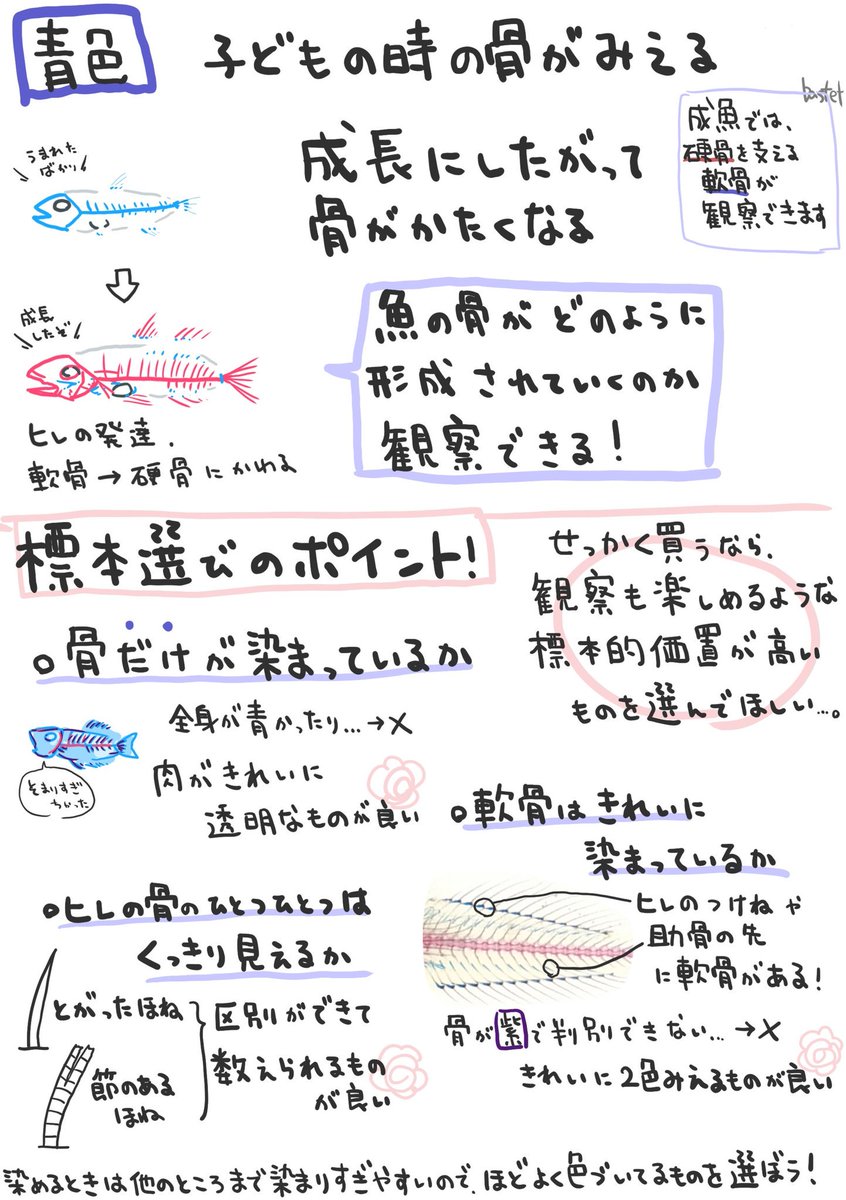 青色
子どもの時の骨がみえる
bastet
成魚では、
硬骨を支える
軟骨が
観察できます
うまれた
ばかり
成長にしたがって
骨がかたくなる
成長
したぞ
魚の骨がどのように
形成されていくのか
観察できる!
ヒレの発達、
軟骨→硬骨にかわる
標本選びのポイント!
せっかく買うなら、
観察も楽しめるような
標本的価置が高い
ものを選んでほしい…。
○骨だけが染まっているか
全身が青かったり…→×
そまりすぎ
ちゃった
肉がきれいに
透明なものが良い
○軟骨はきれいに
染まっているか
ヒレのつけねや
助骨の先
に軟骨がある!
骨が紫で判別できない…→×
きれいに2色みえるものが良い
○ヒレの骨のひとつひとつは
くっきり見えるか
とがったほね
節のある
ほね
区別ができて
数えられるもの
が良い
染めるときは他のところまで染まりすぎやすいので、ほどよく色づいてるものを選ぼう!